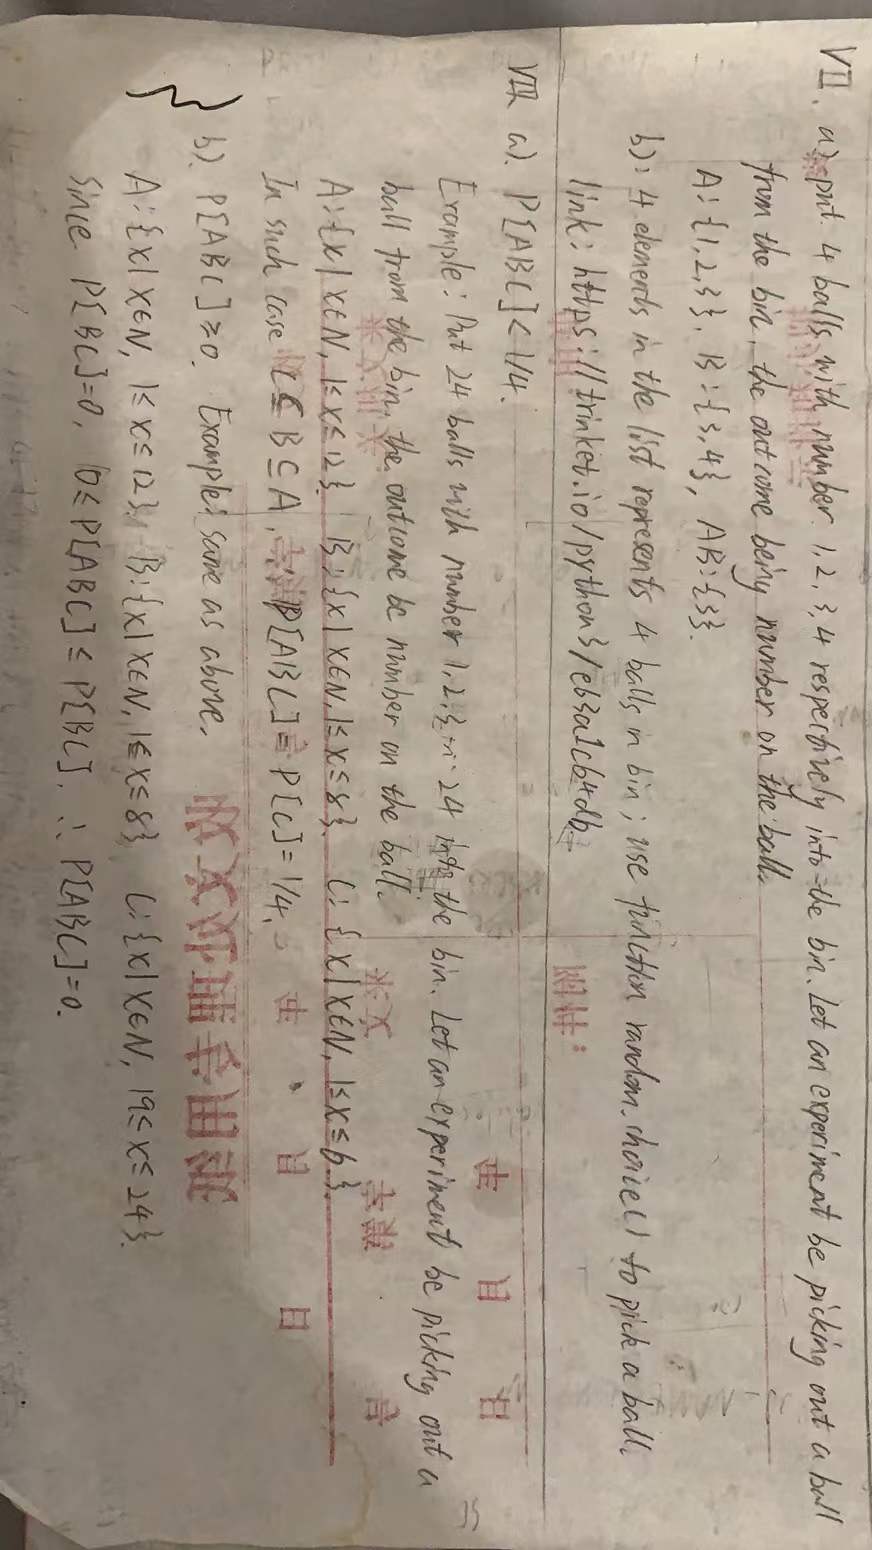 VII. a) put 4 balls with number 1, 2, 3, 4 respectively into the bin. Let an experiment be picking out a ball
from the bin, the outcome being number on the ball.
A: {1,2,3}. B: {3,4}, AB: {3}.
b): 4 elements in the list represents 4 balls in bin; use function random.choice() to pick a ball.
link: https://trinket.io/python3/eb3a1cb4db
VIII a). P[ABC] < 1/4.
Example: Put 24 balls with number 1, 2, 3 ... 24 into the bin. Let an experiment be picking out a
ball from the bin, the outcome be number on the ball.
A: {x | x∈N, 1≤x≤12}. B: {x | x∈N, 1≤x≤8}. C: {x | x∈N, 1≤x≤6}.
In such case C ⊆ B ⊆ A, ∴ P[ABC] = P[C] = 1/4.
b). P[ABC] ≥ 0. Example: same as above.
A: {x | x∈N, 1≤x≤12}. B: {x | x∈N, 1≤x≤8} C: {x | x∈N, 19≤x≤24}.
Since P[BC]=0, 0≤P[ABC]≤P[BC], ∴ P[ABC]=0.
年 月 日
来文 字第 号
年 月 日
收文处理专用纸